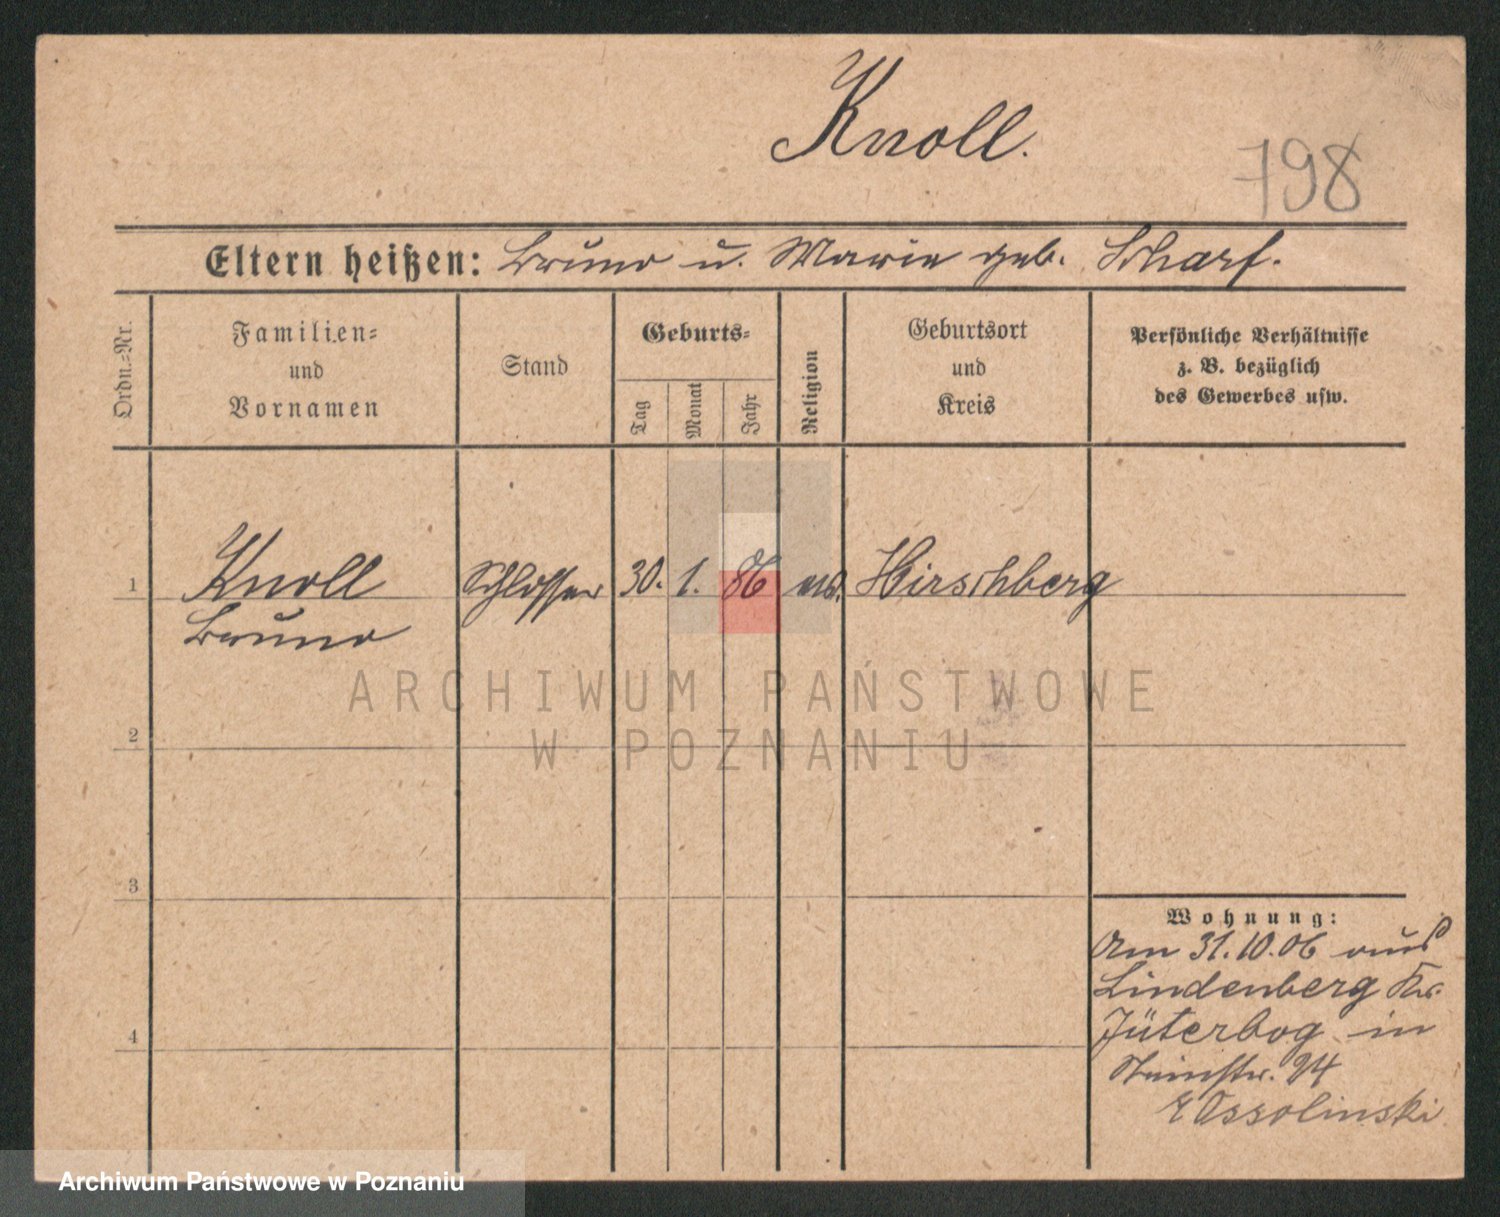 Knoll.
798
Eltern heißen: Bruno u. Marie geb. Scharf.
Ordn.=Nr.
Familien=
und
Vornamen
Stand
Geburts=
Tag
Monat
Jahr
Religion
Geburtsort
und
Kreis
Persönliche Verhältnisse
z. B. bezüglich
des Gewerbes usw.
1
Knoll
Bruno
Schlosser
30.
1.
86
Hirschberg
2
3
4
ARCHIWUM PAŃSTWOWE
W POZNANIU
Wohnung:
Am 31.10.06 aus
Lindenberg Kr.
Jüterbog in
94
Ossolinski
Archiwum Państwowe w Poznaniu